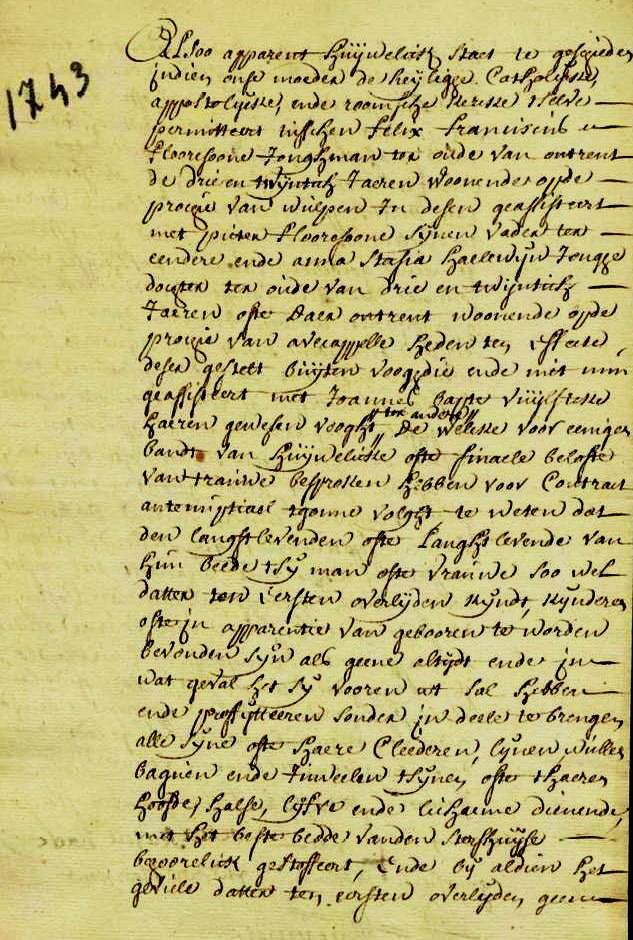 1743
Alsoo apparent huijwelick staet te geschieden
indien onse moeder de heylige Catholycke,
appostolycke, ende roomsche kercke tselve
permitteert tusschen Felix Franciscus
Flooresoone Jonghman ten oude van ontrent
de drie en twijntich Jaeren woonende opde
prochie van wulpen In desen geassisteert
met pieter Flooresoone synen vader ten
eendere ende anna Stasia haelewijn Jonge
dochter ten oude van drie en twijntich
Jaeren ofte daer ontrent woonende opde
prochie van avecappelle heden ten effecte
deser gestelt buijten voogdie ende niet min
geassisteert met Joannes bapte vuijlsteke
haeren gewesen vooght "ten andere" De welcke voor eenigen
bandt van huijwelicke ofte finaele belofte
van trauwe besproken hebben voor Contract
antenuptiael tgonne volght te weten dat
den langhstlevenden ofte langhstlevende van
hun beede tsy man ofte vrauwe soo wel
datter ten eersten overlyden kyndt, kynderen
ofte in apparentie van gebooren te worden
bevonden syn als geene altydt ende in
wat geval het sy vooren ut sal hebben
ende proffytteeren sonder in deele te brengen
alle syne ofte haere Cleederen, lynen, wullen
baguen ende Juweelen tsynen ofte thaeren
hoofde, halse, lyfve ende lichaeme dienende,
met het beste bedde vanden sterfhuyse
behoorelick gestoffeert, Ende by aldien het
geviele datter ten eersten overlyden geene